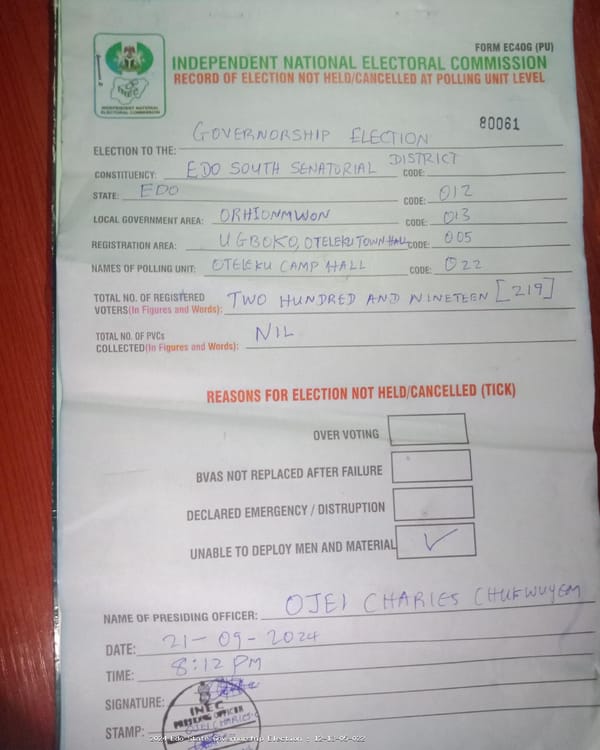 FORM EC40G (PU)
INDEPENDENT NATIONAL ELECTORAL COMMISSION
RECORD OF ELECTION NOT HELD/CANCELLED AT POLLING UNIT LEVEL
INEC
INDEPENDENT NATIONAL
ELECTORAL COMMISSION
80061
ELECTION TO THE: GOVERNORSHIP ELECTION
CONSTITUENCY: EDO SOUTH SENATORIAL DISTRICT CODE:
STATE: EDO CODE: 012
LOCAL GOVERNMENT AREA: ORHIONMWON CODE: 013
REGISTRATION AREA: UGBOKO, OTELEKU TOWN HALL CODE: 005
NAMES OF POLLING UNIT: OTELEKU CAMP HALL CODE: 022
TOTAL NO. OF REGISTERED
VOTERS(In Figures and Words): TWO HUNDRED AND NINETEEN [219]
TOTAL NO. OF PVCs
COLLECTED(In Figures and Words): NIL
REASONS FOR ELECTION NOT HELD/CANCELLED (TICK)
OVER VOTING
BVAS NOT REPLACED AFTER FAILURE
DECLARED EMERGENCY / DISTRUPTION
UNABLE TO DEPLOY MEN AND MATERIAL ✓
NAME OF PRESIDING OFFICER: OJEI CHARLES CHUKWUYEM
DATE: 21-09-2024
TIME: 8:12 PM
SIGNATURE:
STAMP:
INEC
OJEI CHARLES
2024 Edo State Governorship Election : 12-13-05-022